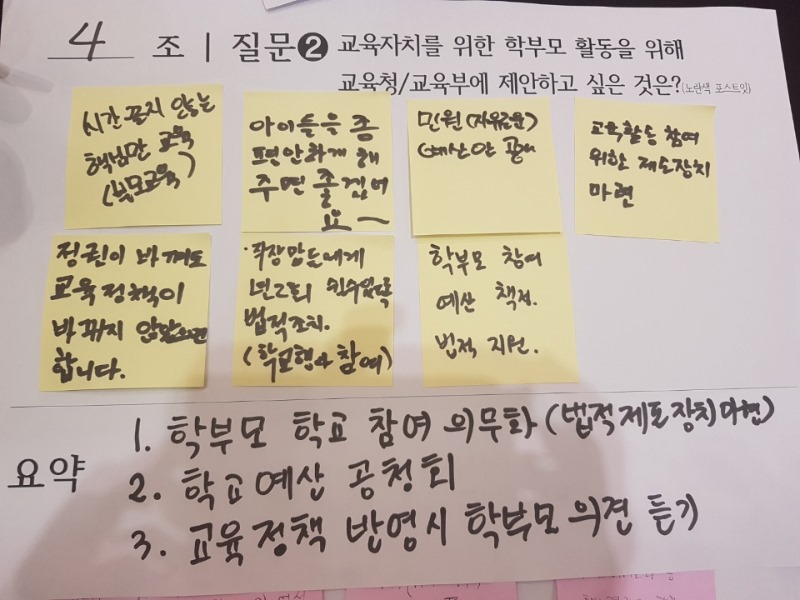 4 조 | 질문❷ 교육자치를 위한 학부모 활동을 위해
교육청/교육부에 제안하고 싶은 것은?(노란색 포스트잇)
시간 끌지 않는
핵심만 교육
(부모교육)
아이들을 좀
편안하게 해
주면 좋겠어
요~
민원(자유로움)
예산안 공개
교육활동 참여
위한 제도장치
마련
정권이 바껴도
교육정책이
바뀌지 않았으면
합니다.
·직장맘들에게
년2회 쉴수있도록
법적조치.
(학교행사 참여)
학부모 참여
예산 책정.
법적 지원.
요약
1. 학부모 학교 참여 의무화 (법적제도장치마련)
2. 학교예산 공청회
3. 교육정책 반영시 학부모 의견 듣기